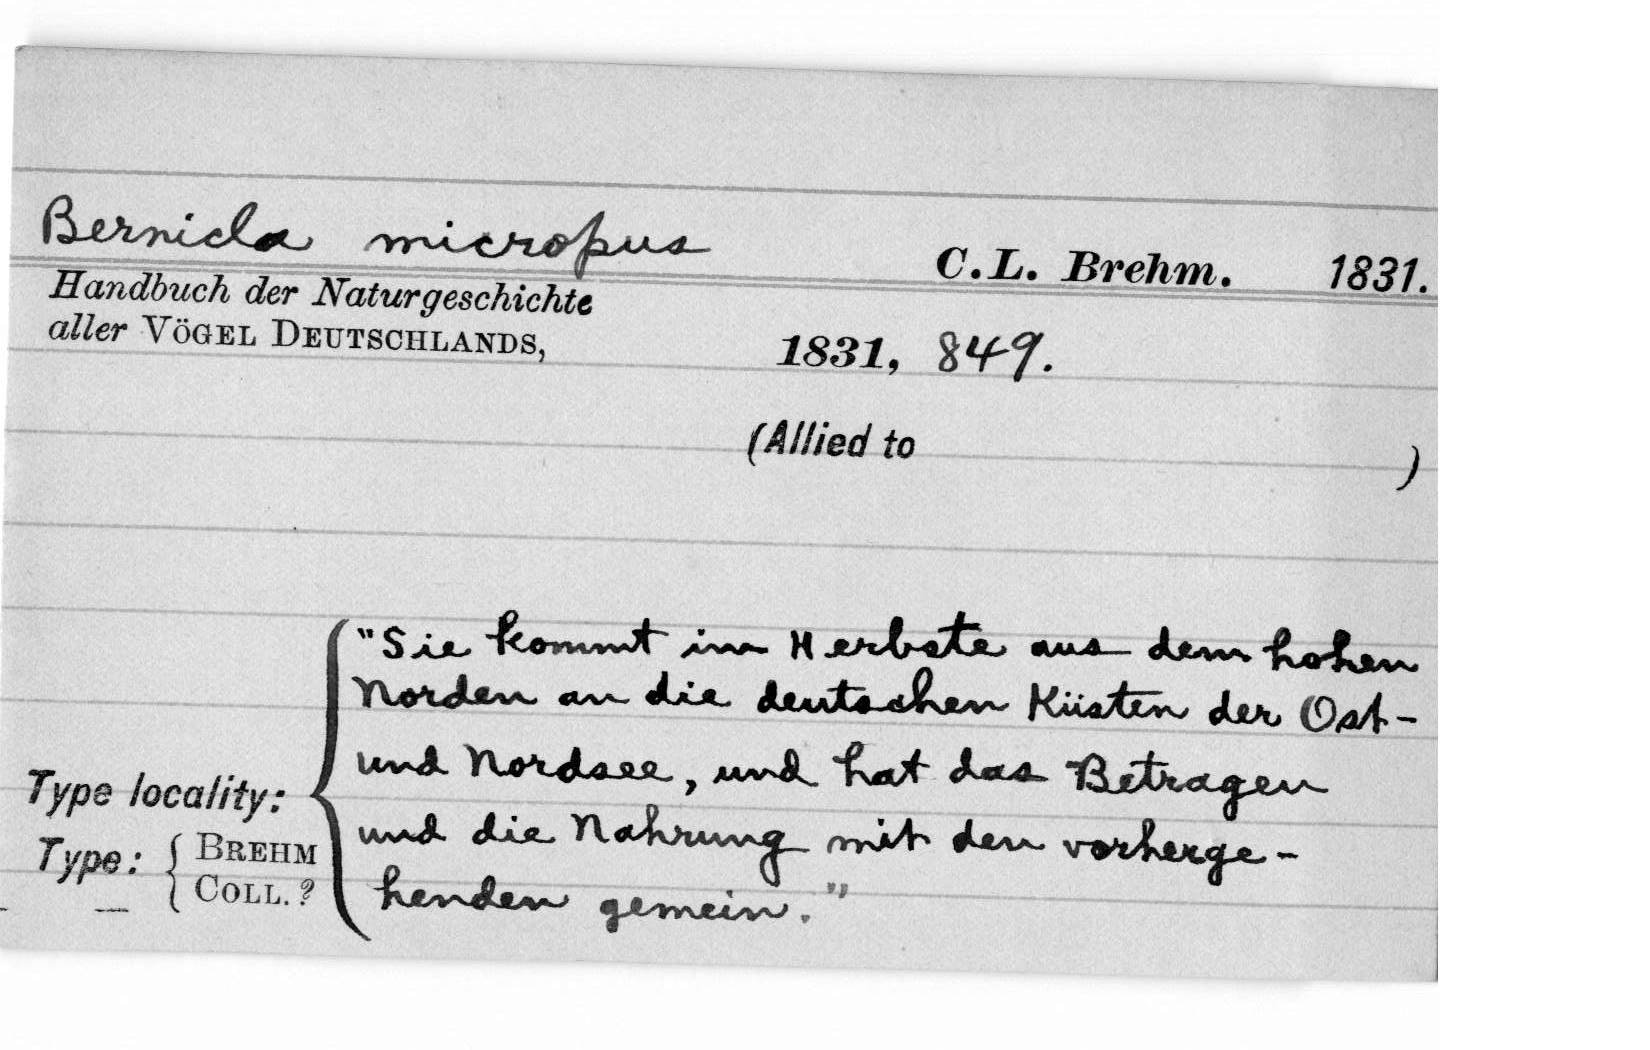 Bernicla micropus C.L. Brehm. 1831.
Handbuch der Naturgeschichte
aller VÖGEL DEUTSCHLANDS, 1831, 849.
(Allied to )
"Sie kommt im Herbste aus dem hohen
Norden an die deutschen Küsten der Ost-
und Nordsee, und hat das Betragen
Type locality:
und die Nahrung mit den vorherge-
Type: { BREHM
COLL. ?
henden gemein."